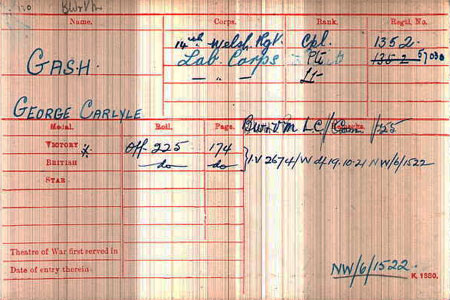 BWVM
Name. Corps. Rank. Regtl. No.
14th Welsh Rgt. Cpl. 1352.
GASH. Lab. Corps Pte 1352 57030
— " — Lt
GEORGE CARLYLE
BWVM L.C/ Com /25
Medal. Roll. Page.
VICTORY * Off. 225 174
BRITISH do do } I.V 2674/W d/19.10.21 NW/6/1522
STAR
Theatre of War first served in
Date of entry therein.
NW/6/1522. K. 1380.